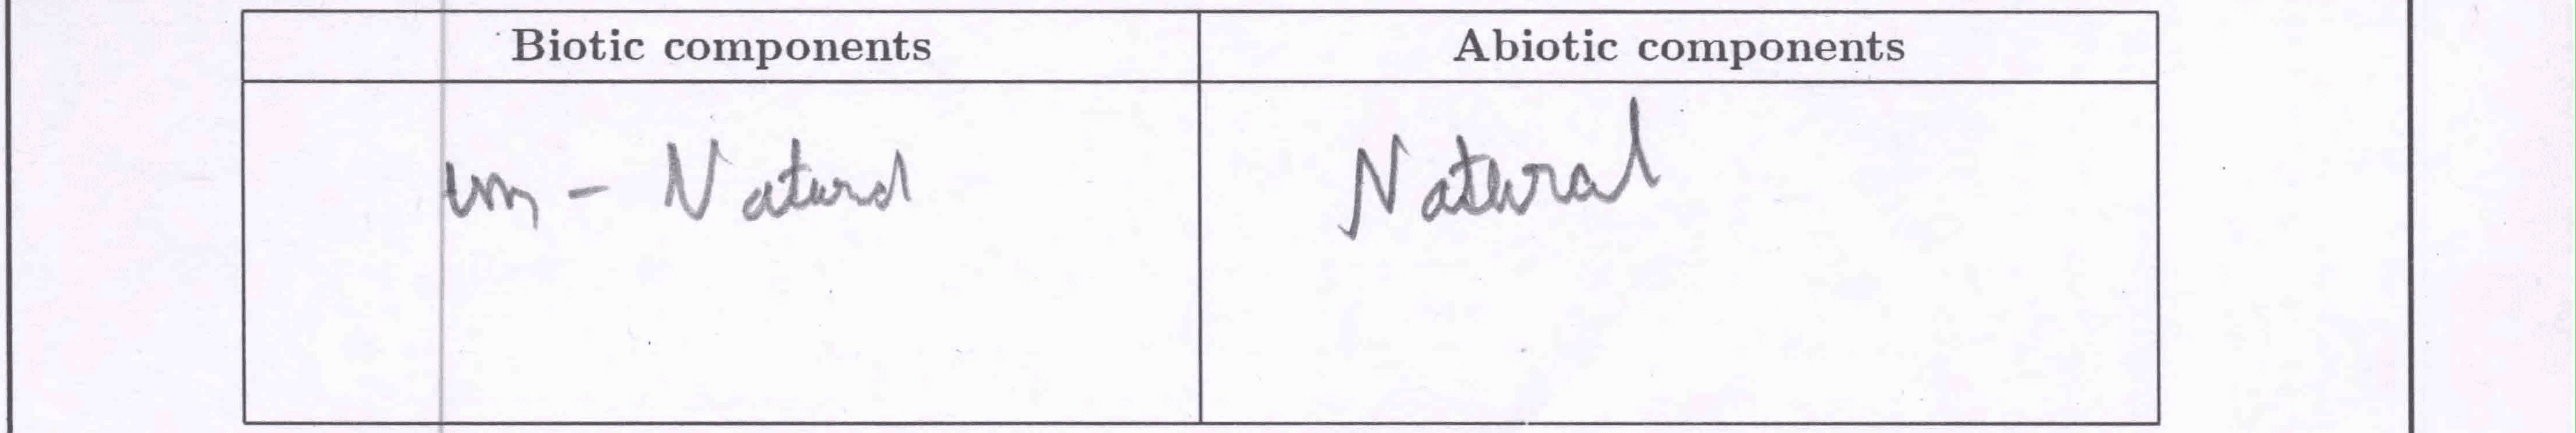 Biotic components
Abiotic components
um - Natural
Natural